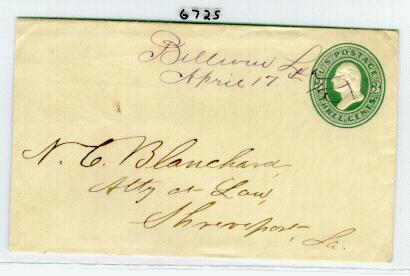 6725
April 17th
U.S. POSTAGE
THREE CENTS
N. C. Blanchard,
Atty at Law,
Shreveport, La.